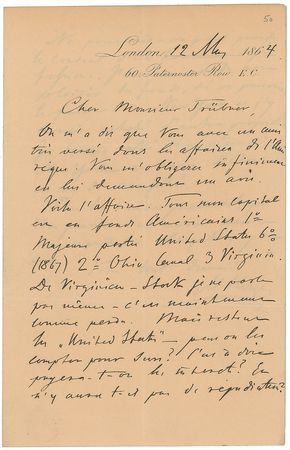 50
London, 12 May 1864.
60, Paternoster Row E.C.
Cher Monsieur Trübner,
On m'a dit que Vous avez un ami
très versé dans les affaires de l'Amé-
rique. Vous m'obligerez infiniment
en lui demandant un avis.
Voilà l'affaire. Tout mon capital
est en fonds Américains 1º
Majeure partie United States 6%
(1867) 2º Ohio Canal 3 Virginia.
De Virginian-Stock je ne parle
pas même – c'est maintenant
comme perdu. Mais restent
les "United States" – peut on les
compter pour surs? C'est à dire
payera-t-on les interêt? Et
n'y aura-t-il pas de répudiation?